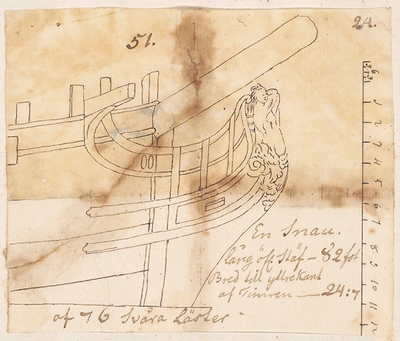 51.
24.
6 12
1
2
3
4
5
6
7
8
9
10
11
12
En Snau.
lång öfr Stäf — 82 fot
Bred till yttrekant
af Timren — 24:7
af 76 Svåra Läster.